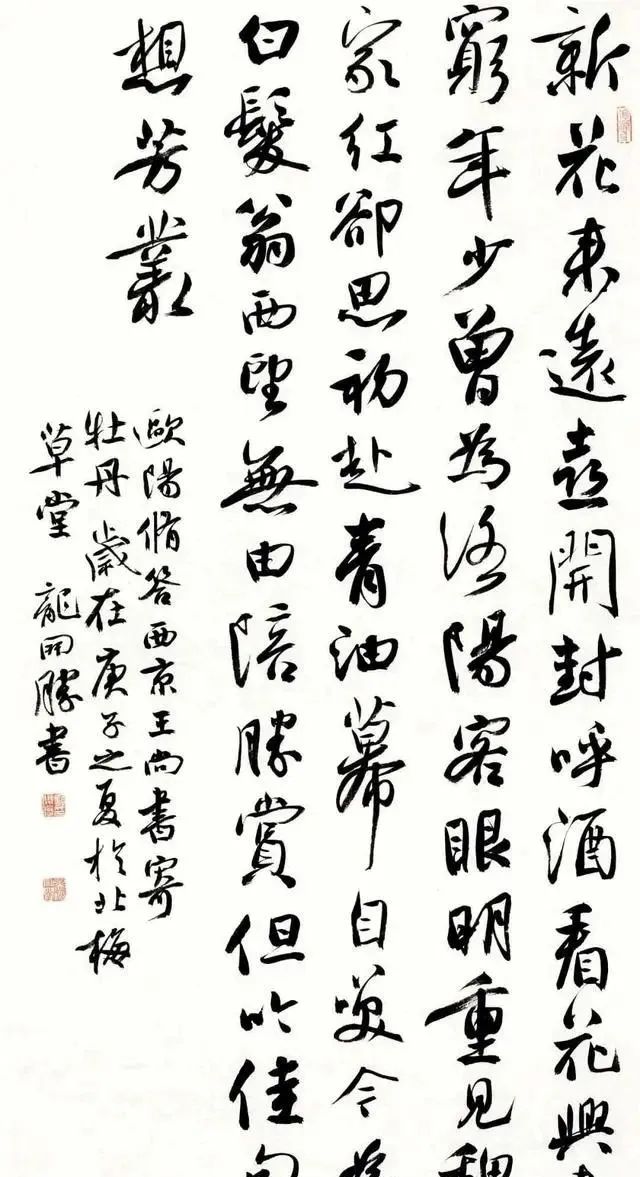 新花來遠喜開封呼酒看花興
窮年少曾為洛陽客眼明重見魏
家紅卻思初赴青油幕自笑今為
白髮翁西望無由陪勝賞但吟佳句
想芳叢
歐陽脩答西京王尚書寄
牡丹 歲在庚子之夏於北梅
草堂 龍開勝書